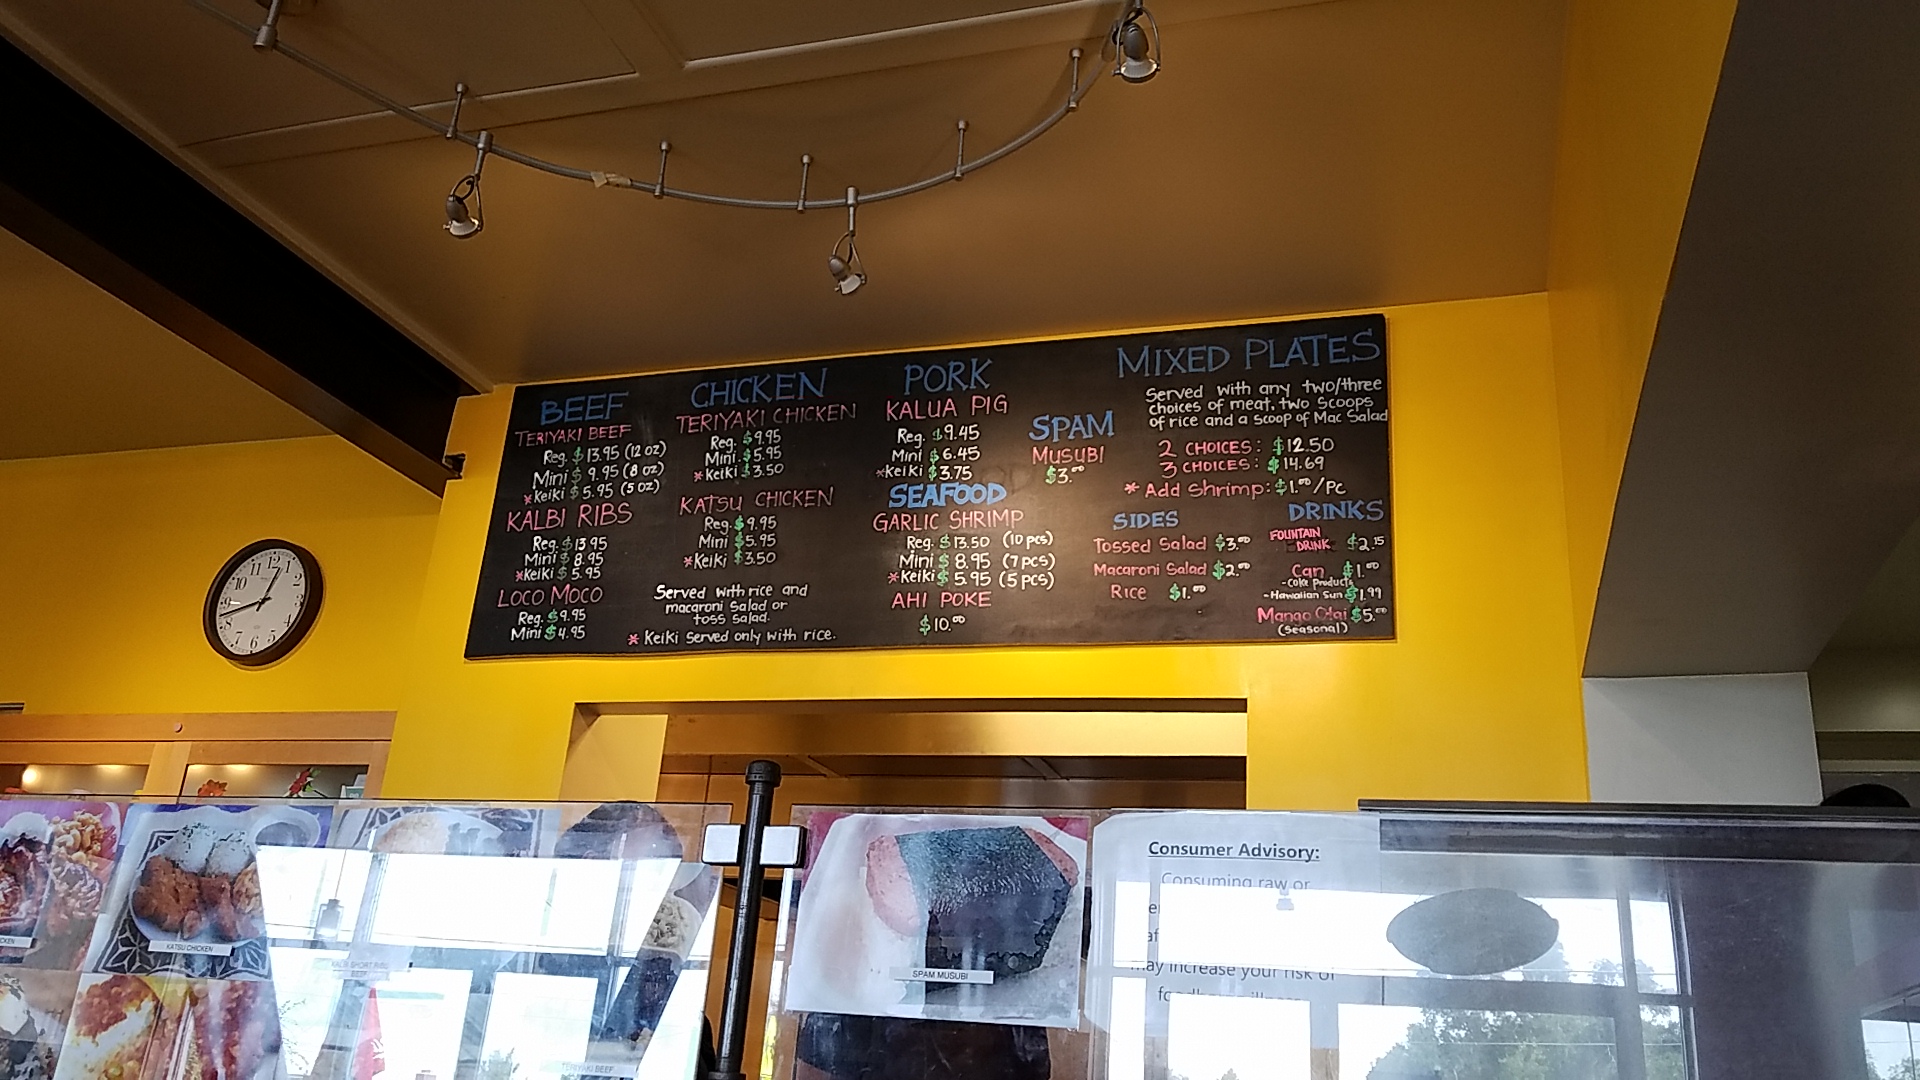 BEEF
TERIYAKI BEEF
Reg. $13.95 (12 oz)
Mini $9.95 (8 oz)
*Keiki $5.95 (5 oz)
KALBI RIBS
Reg. $13.95
Mini $8.95
*Keiki $5.95
LOCO MOCO
Reg. $9.95
Mini $4.95
CHICKEN
TERIYAKI CHICKEN
Reg. $9.95
Mini $5.95
*Keiki $3.50
KATSU CHICKEN
Reg. $9.95
Mini $5.95
*Keiki $3.50
Served with rice and
macaroni Salad or
toss Salad.
* Keiki Served only with rice.
PORK
KALUA PIG
Reg. $9.45
Mini $6.45
*Keiki $3.75
SEAFOOD
GARLIC SHRIMP
Reg. $13.50 (10 pcs)
Mini $8.95 (7 pcs)
*Keiki $5.95 (5 pcs)
AHI POKE
$10.00
SPAM
MUSUBI
$3.00
MIXED PLATES
Served with any two/three
choices of meat, two Scoops
of rice and a Scoop of Mac Salad
2 CHOICES: $12.50
3 CHOICES: $14.69
* Add Shrimp: $1.00/Pc
SIDES
Tossed Salad $3.00
Macaroni Salad $2.00
Rice $1.00
DRINKS
FOUNTAIN
DRINK $2.15
Can $1.00
-Coke Products
-Hawaiian Sun $1.99
Mango Otai $5.00
(Seasonal)
12
1
2
3
4
5
6
7
8
9
10
11
KATSU CHICKEN
KALBI SHORT RIBS
BEEF
TERIYAKI BEEF
SPAM MUSUBI
Consumer Advisory:
Consuming raw or
may increase your risk of